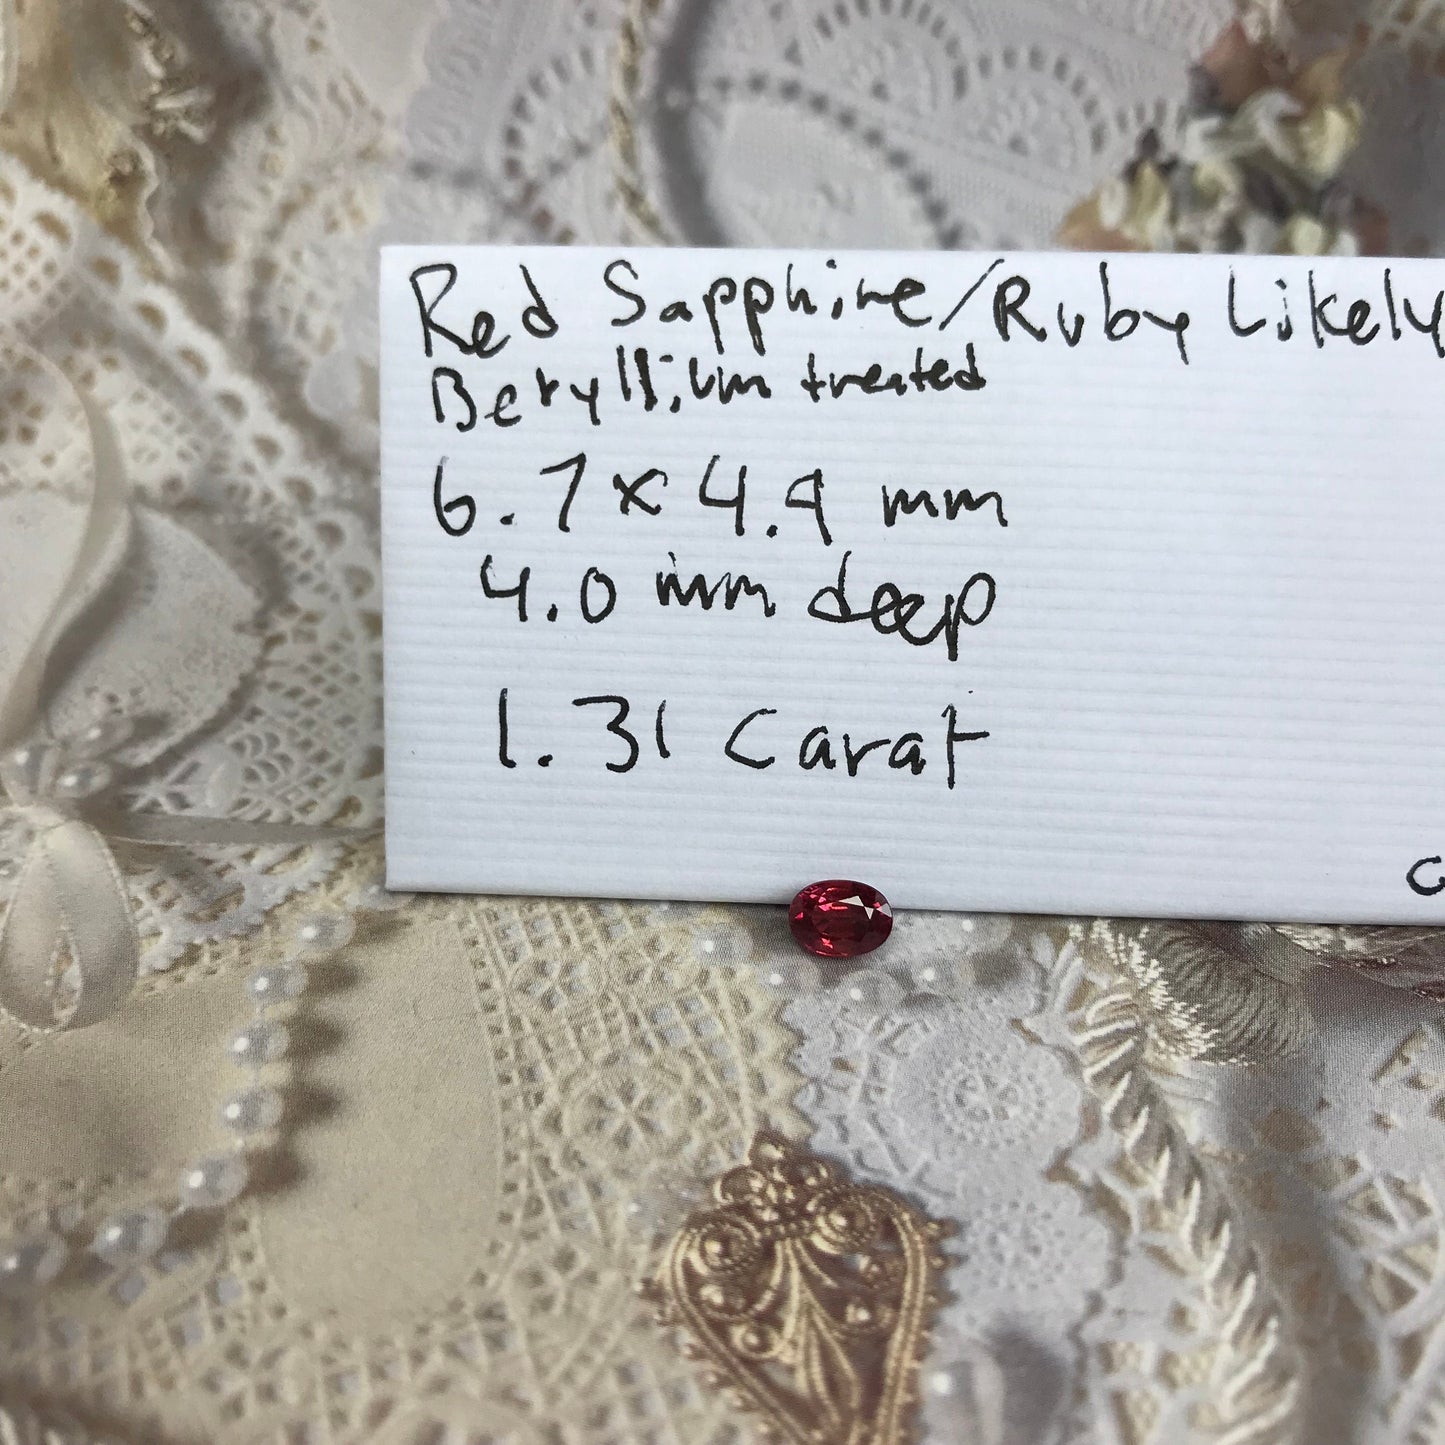 Red Sapphire/Ruby Likely
Beryllium treated
6.7x4.9 mm
4.0 mm deep
1.31 Carat